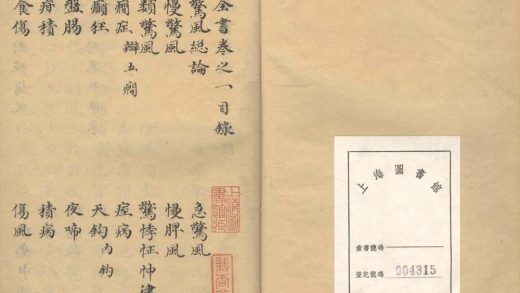 上海圖書館
索書號碼
登記號碼 004315
全書卷之一目錄
驚風総論 急驚風
慢驚風 慢脾風
類驚風 驚悸怔忡
癇症 辨五癇 痙病
癲狂 天釣 內釣
盤腸 夜啼
積病
食傷 傷風
上海圖書館藏